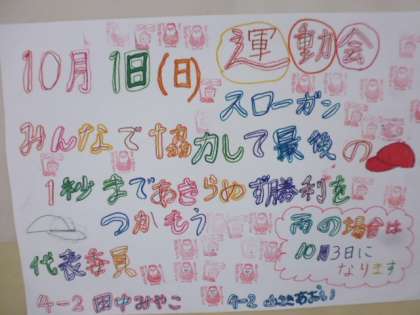 10月1日(日) 運動会
スローガン
みんなで協力して最後の
1秒まであきらめず勝利を
つかもう
雨の場合は
10月3日に
なります
代表委員
4-2 田中みやこ 4-2 あおい